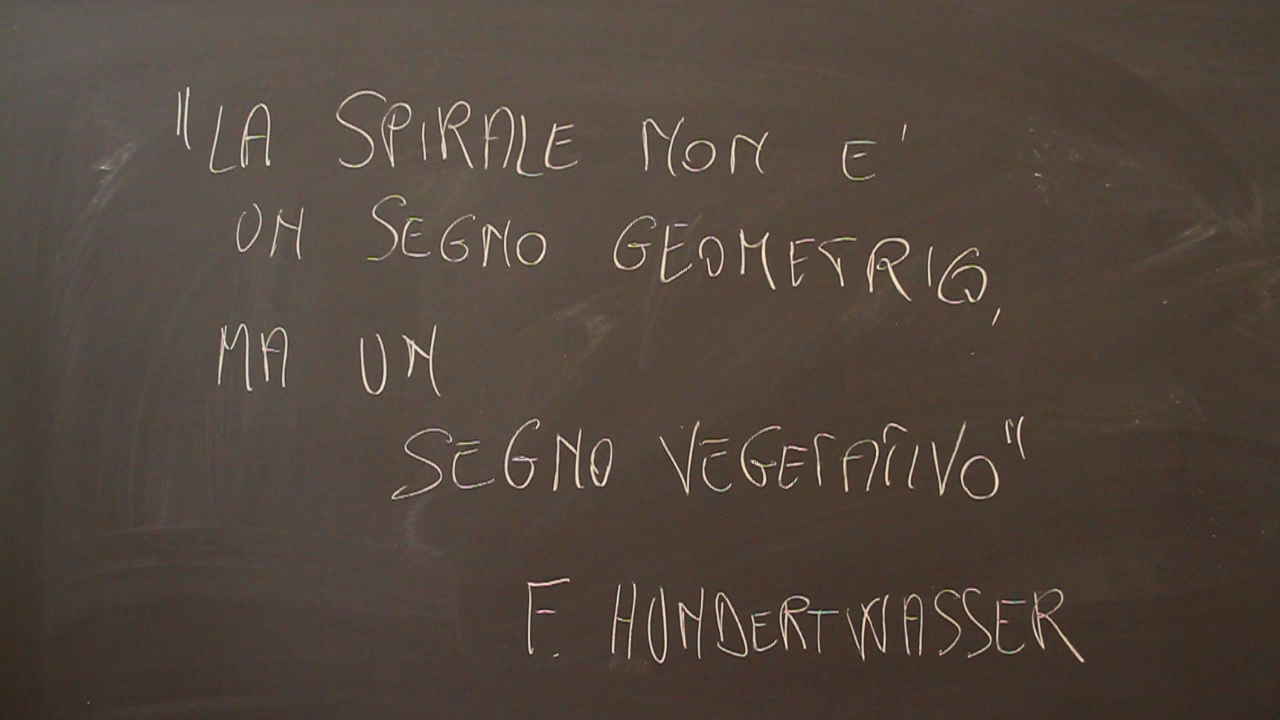 "LA SPIRALE NON E'
UN SEGNO GEOMETRICO,
MA UN
SEGNO VEGETATIVO"
F. HUNDERTWASSER